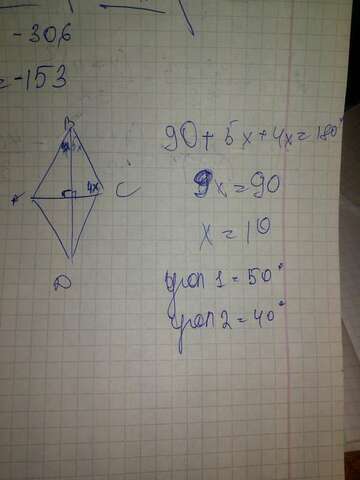 -30,6
= -153
B
5x
A
4x
C
D
90 + 5x + 4x = 180°
9x = 90
x = 10
угол 1 = 50°
угол 2 = 40°